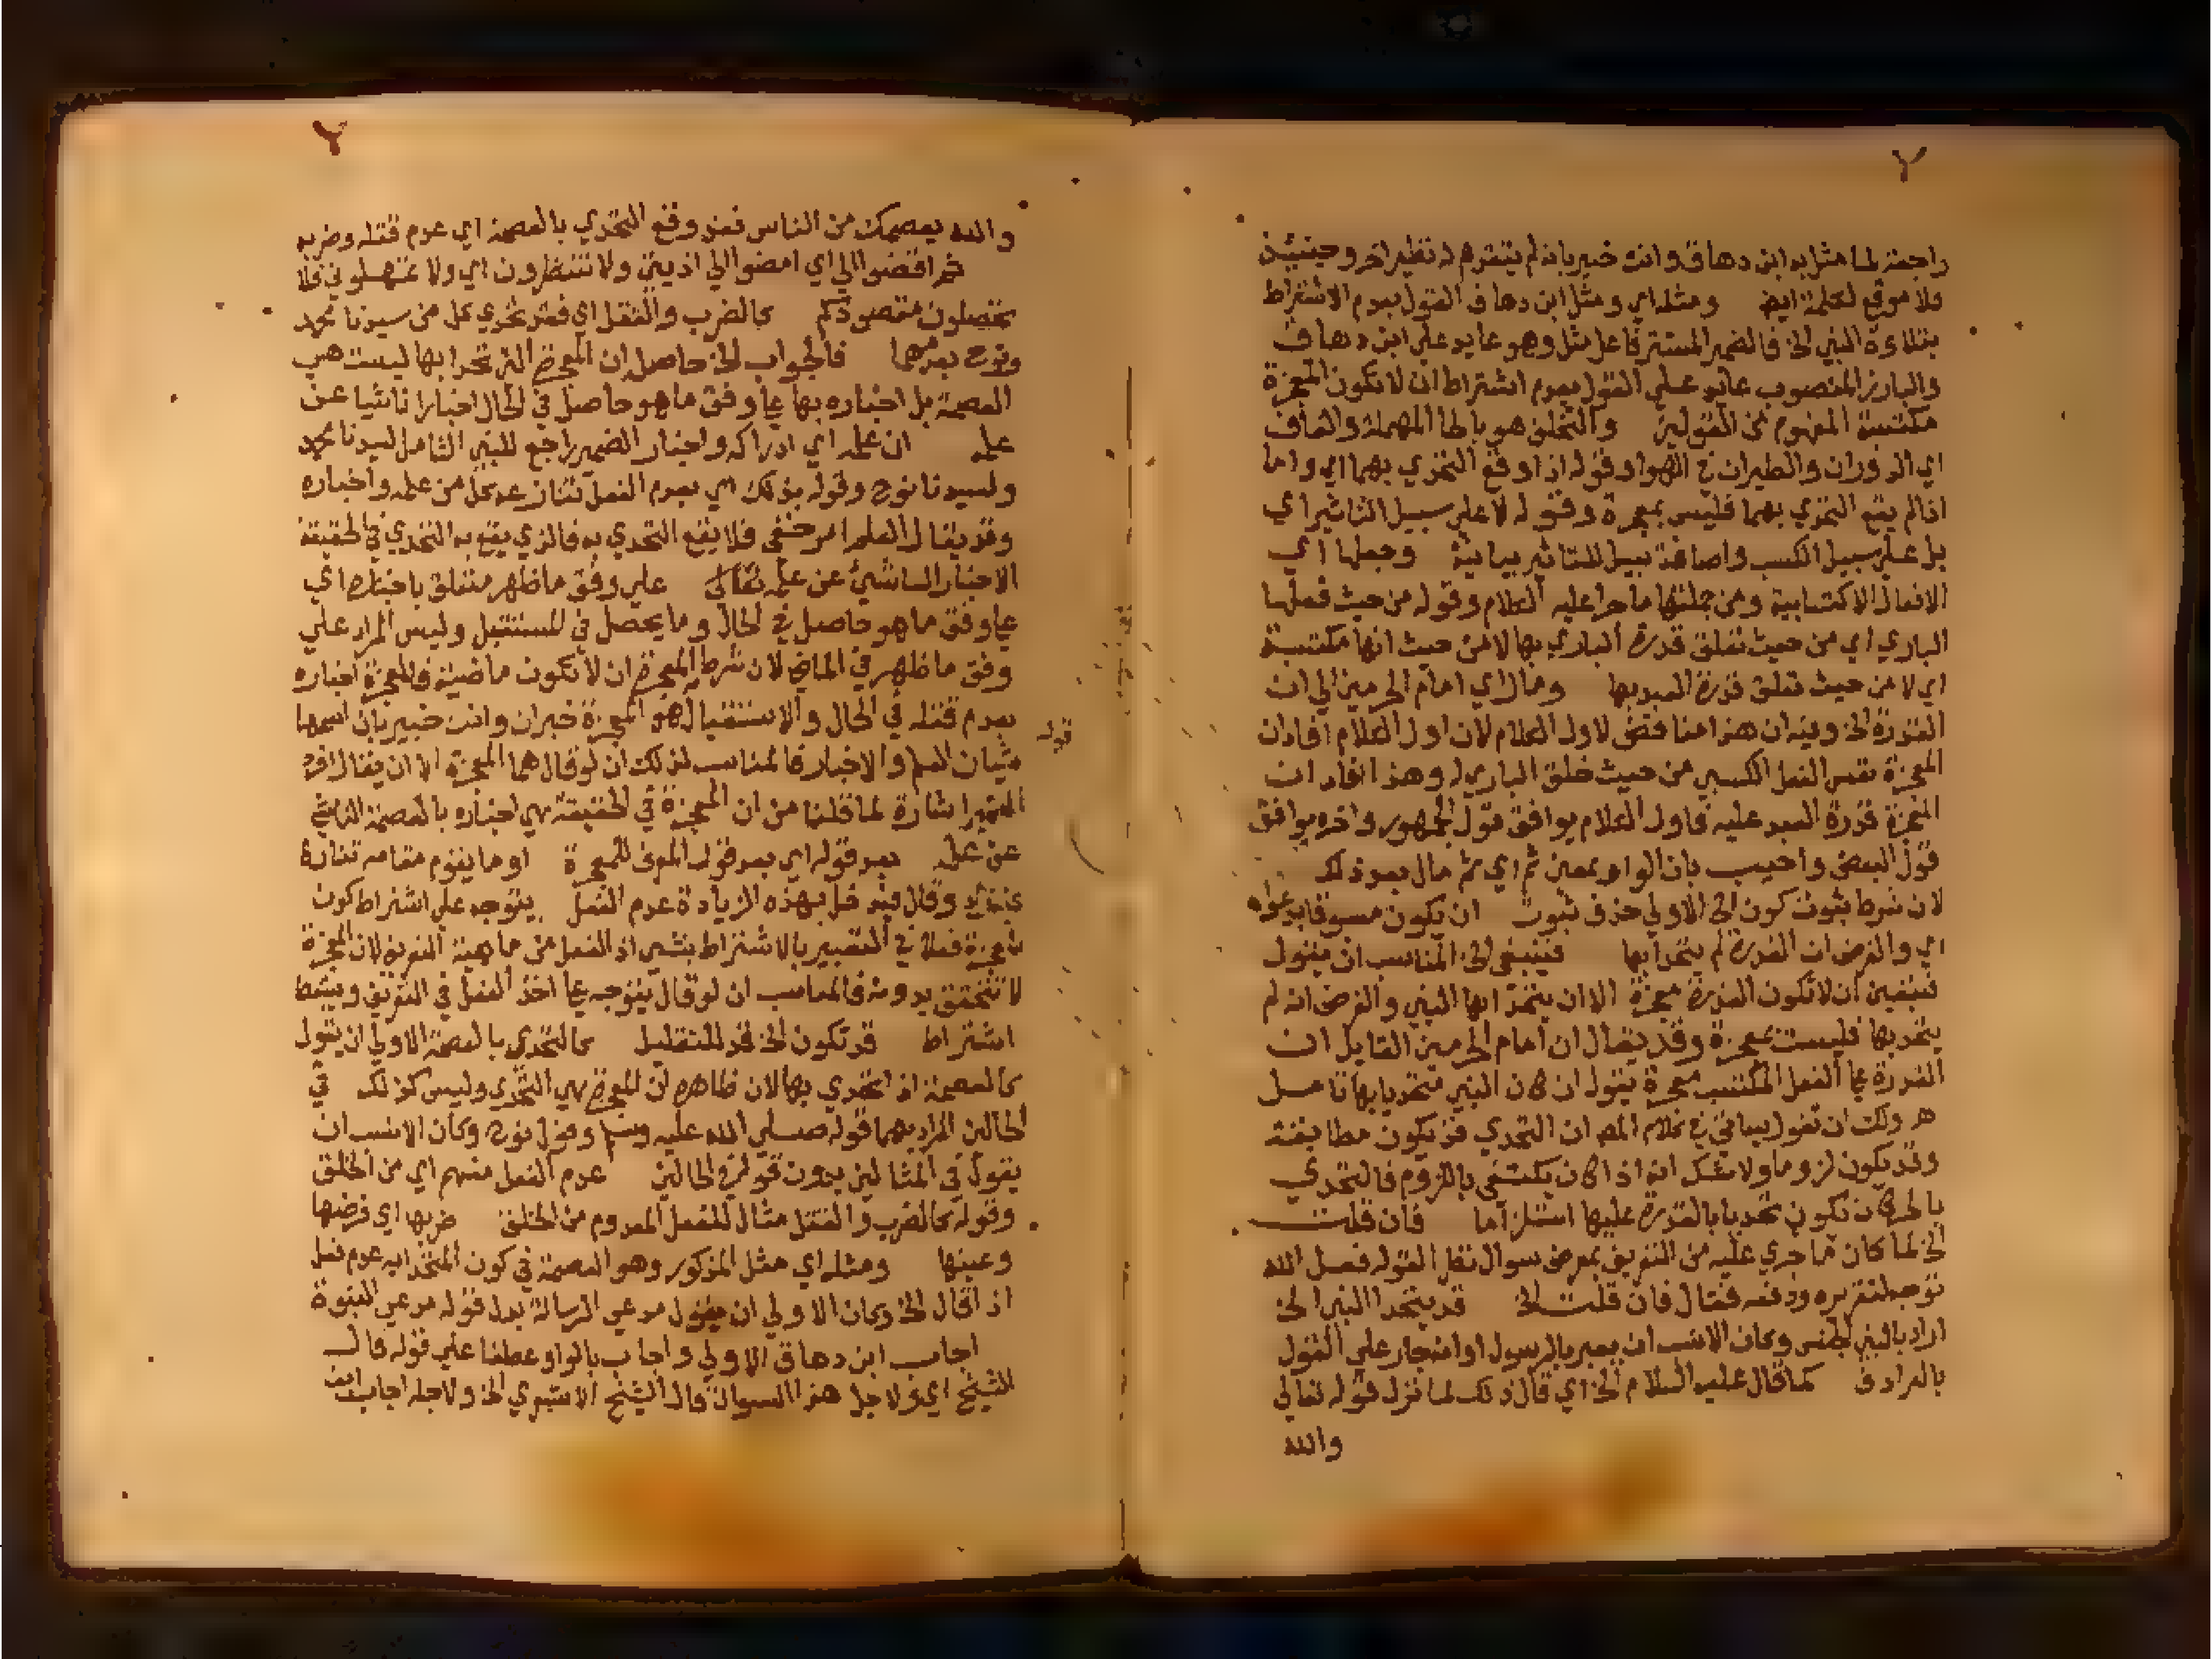 ٢
راجعة لما مثل به ابن دهاق وانت خبير بانه لم يتقدم له نظير اخر وحينئذ
فلا موقع لكلمة ايضا ومثله اي ومثل ابن دهاق القول بعدم الاشتراط
بتلاوة النبي الخ فالضمير المستتر فاعل مثل وهو عايد علي ابن دهاق
والبارز المنصوب عايد علي القول بعدم اشتراط ان لا تكون المعجزة
مكتسبة المفهوم من القولين والتحلق هو بالحا المهملة والقاف
اي الدوران والطيران في الهوا وقوله اذا وقع التحدي بهما اي واما
اذا لم يقع التحدي بهما فليس بمعجزة وقوله لا علي سبيل التاثير اي
بل علي سبيل الكسب واضافة سبيل للتاثير بيانية وجعلها اي
الافعال الاكتسابية ومن جملتها ما جرا عليه الكلام وقوله من حيث فعلها
الباري اي من حيث تعلق قدرة الباري بها لا من حيث انها مكتسبة
اي لا من حيث تعلق قدرة العبد بها ومال اي امام الحرمين الي ان
القدرة الخ وفيه ان هذا مناقض لاول الكلام لان اول الكلام افاد ان
المعجزة نفس الفعل الكسبي من حيث خلق الباري له وهذا افاد ان
المعجزة قدرة العبد عليه فاول الكلام يوافق قول الجمهور واخره يوافق
قول البعض واجيب بان الواو بمعني ثم اي ثم مال بعد ذلك
لان شرط ثبوت كون الخ الاولي حذف ثبوت ان يكون مسبوقا بدعواه
اي والفرض ان القدرة لم يتحدا بها فينبغي الخ المناسب ان يقول
فيتعين ان لا تكون القدرة معجزة الا ان يتحدا بها النبي والفرض انه لم
يتحد بها فليست بمعجزة وقد يقال ان امام الحرمين القايل ان
القدرة علي الفعل المكتسب معجزة يقول ان كان النبي متحديا بها تامل
هـ ولك ان تقول سياتي في كلام المص ان التحدي قد يكون مطابقة
وقد يكون لزوما ولا شك انه اذا كان يكتفي باللزوم فالتحدي
بالحركات يكون تحديا بالقدرة عليها استلزاما فان قلت
الخ لما كان ما جري عليه من التعريف بمعرض سوال نظرا لقوله فصل الله
توجه لتقريره ودفعه فقال فان قلت الخ قد يتحدا النبي الخ
اراد بالنبي الجنس وكان الانسب ان يعبر بالرسول او انه جار علي القول
بالترادف كما قال عليه السلام الخ اي قال ذلك لما نزل قوله تعالي
والله
٢
والله يعصمك من الناس فقد وقع التحدي بالعصمة اي عدم قتله وضربه
ثم اقضوا الي اي امضوا الي اذيتي ولا تنظرون اي ولا تمهلوني فلا
تحصلون مقصودكم كالضرب والقتل اي فقد تحدي كل من سيدنا محمد
ونوح بعدمهما فالجواب الخ حاصله ان المعجزة التي تحدا بها ليست هي
العصمة بل اخباره بها علي وفق ما هو حاصل في الحال اخبارا ناشيا عن
علمه ان علمه اي ادراكه واخبار الضمير راجع للنبي الشامل لسيدنا محمد
ولسيدنا نوح وقوله بذلك اي بعدم الفعل تنازعه كل من علمه واخباره
وقد يقال العلم امر خفي فلا يقع التحدي به فالذي يقع به التحدي في الحقيقة
الاخبار الناشي عن علمه تعالي علي وفق ما ظهر متعلق باخباره اي
علي وفق ما هو حاصل في الحال وما يحصل في المستقبل وليس المراد علي
وفق ما ظهر في الماضي لان شرط المعجزة ان لا تكون ماضية فالمعجزة اخباره
بعدم قتله في الحال والاستقبال هو المعجزة خبر ان وانت خبير بان اسمها
شيان العلم والاخبار فالمناسب لذلك ان لو قال هما المعجزة الا ان يقال افرد
الضمير اشارة لما قلنا من ان المعجزة في الحقيقة هي اخباره بالعصمة الناشي
عن علمه بعد قوله اي بعد قوله المعرف للمعجزة او ما يقوم مقامه تنازعه
وقال فيه قل بهذه الزيادة عدم الفعل يتوجه علي اشتراط كون
المعجزة فعلا في التعبير بالاشتراط بشي اذ الفعل من ماهية التعريف لان المعجزة
لا تتحقق بدونه فالمناسب ان لو قال يتوجه علي اخذ الفعل في التعريف ويسقط
اشتراط قد تكون الخ قد للتقليل كالتحدي بالعصمة الاولي ان يقول
كالعصمة اذا تحدي بها لان ظاهره ان المعجزة هي التحدي وليس كذلك في
الحالين المراد بهما قوله صلي الله عليه وسلم وقول نوح وكان الانسب ان
يقول في المثالين بدون قوله في الحالين عدم الفعل منهم اي من الخلق
وقوله كالضرب والقتل مثال للفعل المعدوم من الخلق ضربها اي فرضها
وعينها ومثله اي مثل المذكور وهو العصمة في كون المتحدا به عدم فعل
اذا قال الخ وكان الاولي ان يقول مدعي الرسالة بدل قوله مدعي النبوة
اجاب ابن دهاق الاولي واجاب بالواو عطفا علي قوله قال
الشيخ اي ولاجل هذا السوال قال الشيخ الاشعري الخ ولاجله اجاب ابن
قوله